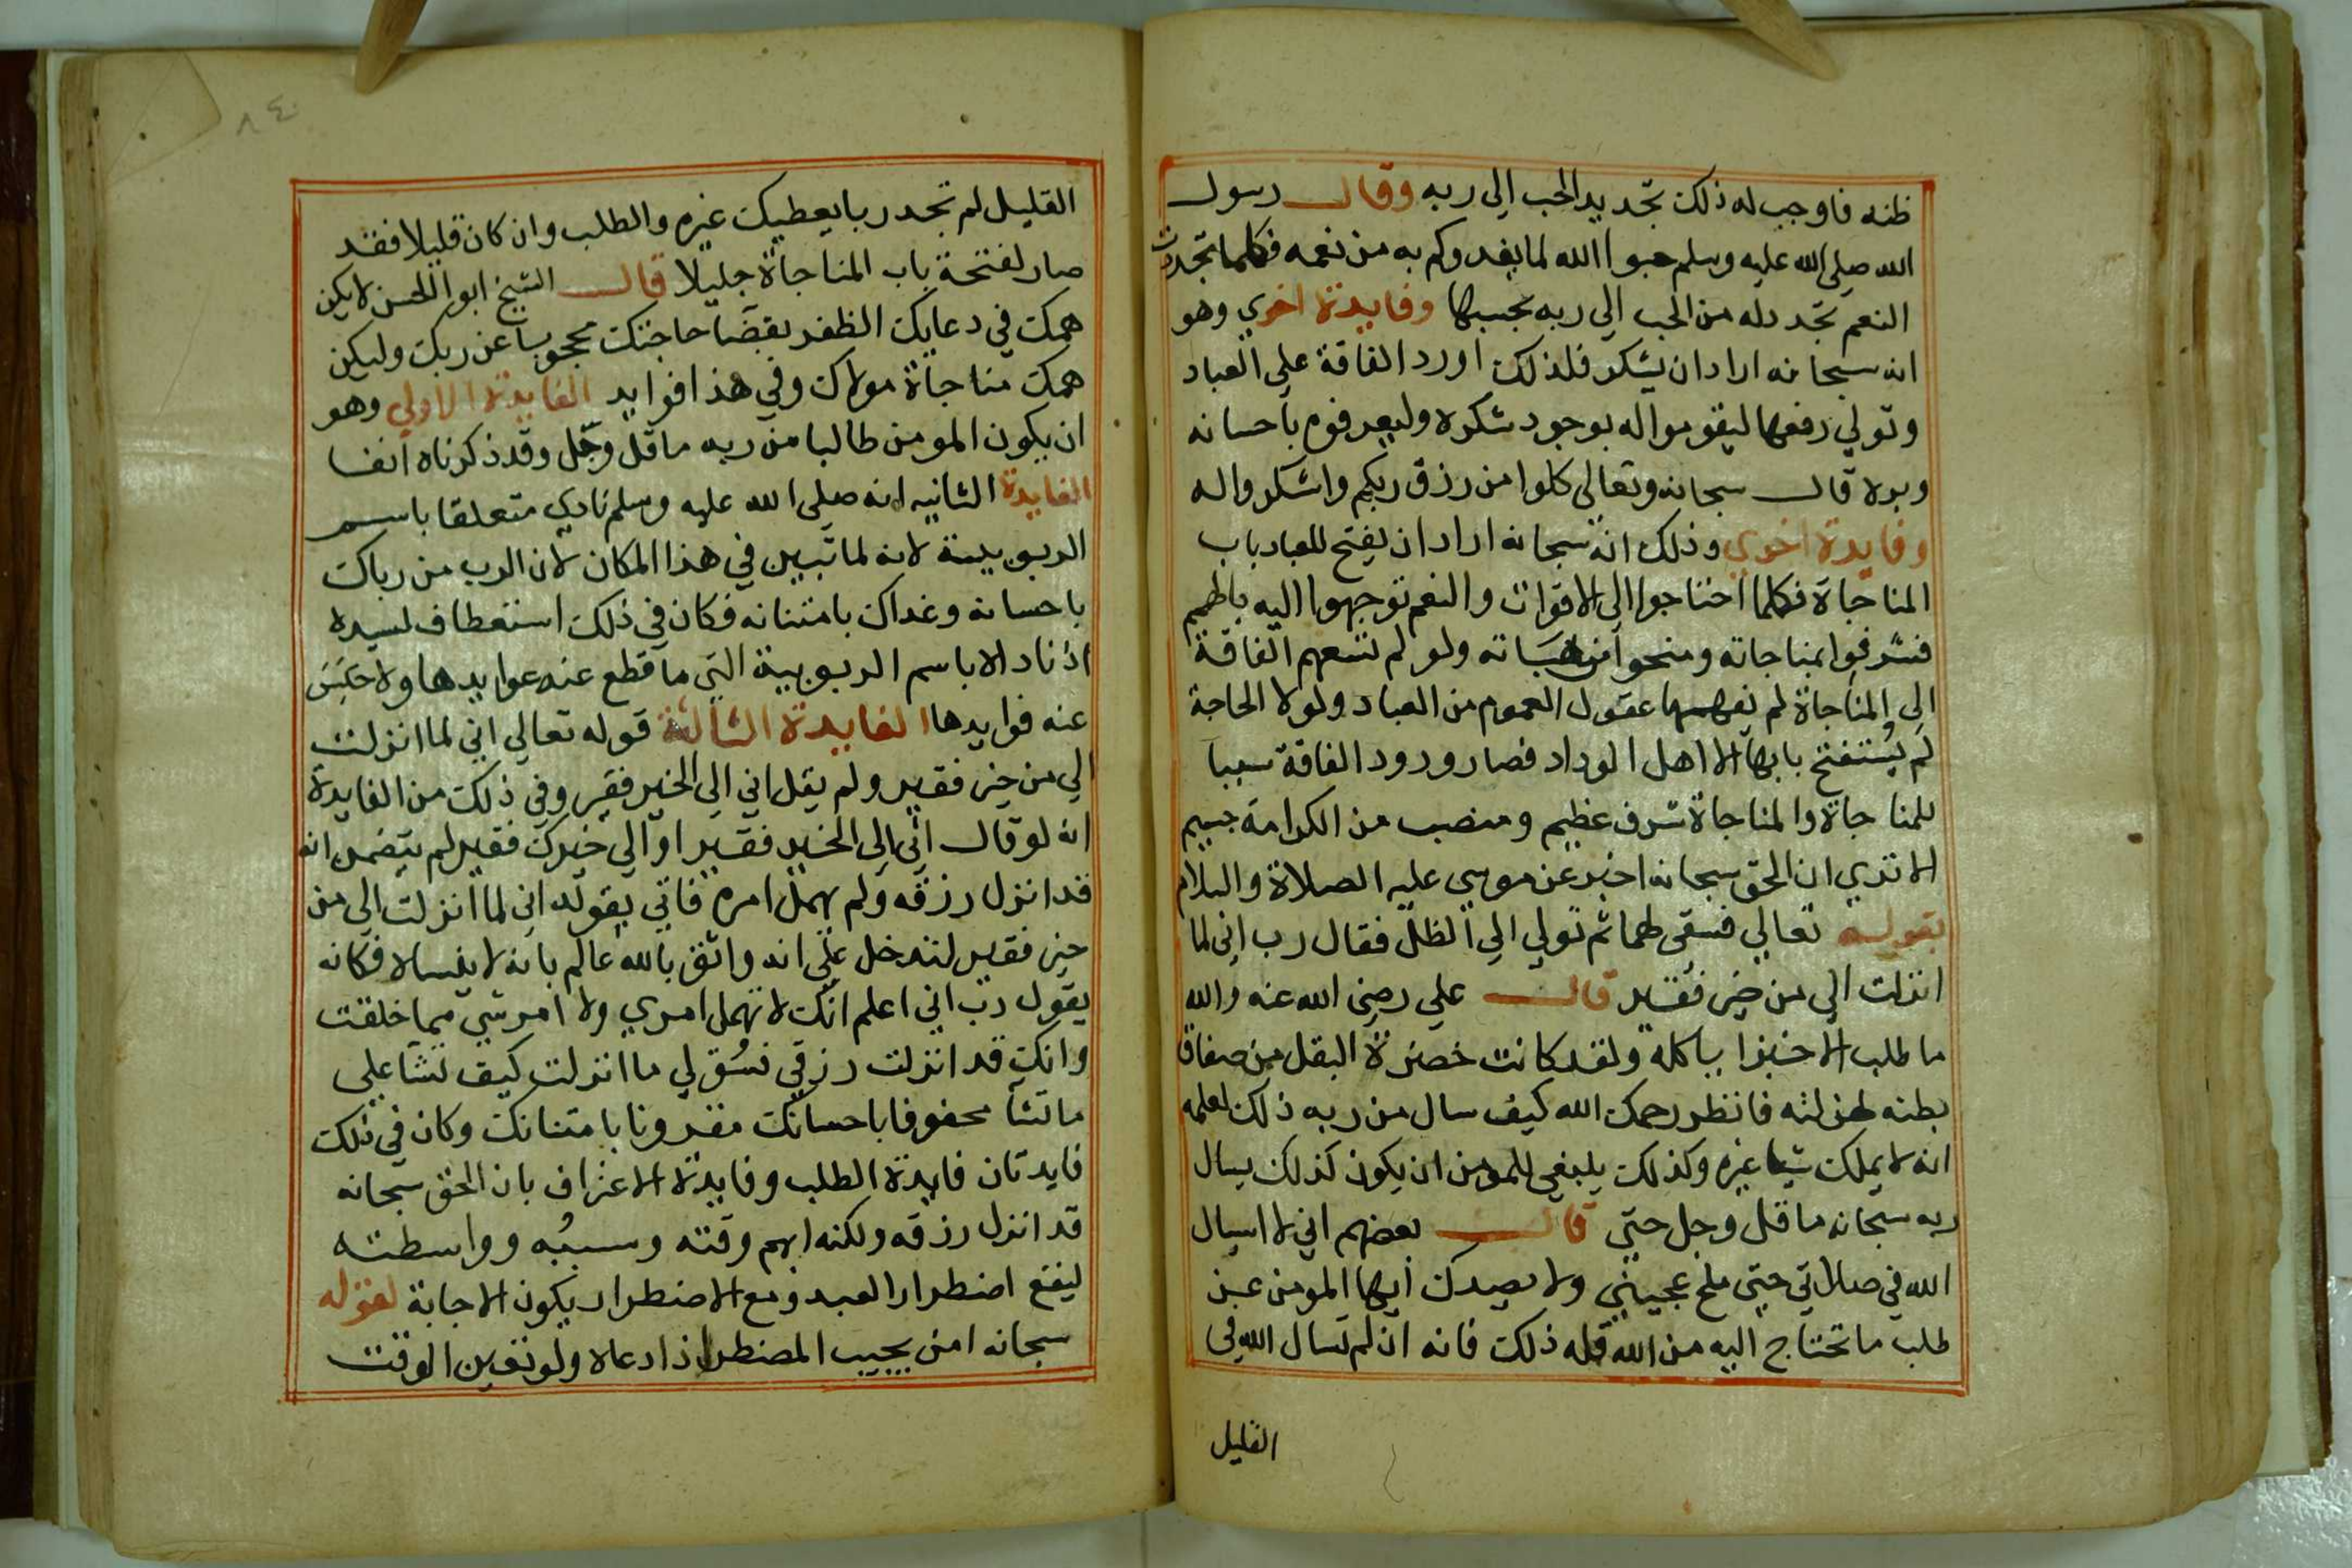 ظنه فاوجب له ذلك تجديد الحب الى ربه وقال رسول
الله صلى الله عليه وسلم حبوا الله لما يغدوكم به من نعمه فكلما تجددت
النعم تجدد له من الحب الى ربه بحسبها وفايدة اخري وهو
انه سبحانه اراد ان يشكر فلذلك اورد الفاقة علي العباد
وتولي رفعها ليقوموا له بوجود شكره وليعرفوه باحسانه
وبره قال سبحانه وتعالى كلوا من رزق ربكم واشكروا له
وفايدة اخري وذلك انه سبحانه اراد ان يفتح للعباد باب
المناجاة فكلما احتاجوا الى الاقوات والنعم توجهوا اليه بالهمم
فشرفوا بمناجاته ومنحوا من هباته ولو لم تسقهم الفاقة
الى المناجاة لم تفهمها عقول العموم من العباد ولولا الحاجة
لم يُستفتح بابها الا اهل الوداد فصار ورود الفاقة سببا
للمناجاة والمناجاة شرف عظيم ومنصب من الكرامة جسيم
الا تري ان الحق سبحانه اخبر عن موسي عليه الصلاة والسلام
بقوله تعالي فسقى لهما ثم تولي الي الظل فقال رب اني لما
انزلت الي من خير فقير قال علي رضي الله عنه والله
ما طلب الا خبزا ياكله ولقد كانت خضرة البقل من صفاق
بطنه لهزلته فانظر رحمك الله كيف سال من ربه ذلك لعلمه
انه لا يملك شيا غيره وكذلك ينبغي للمومن ان يكون كذلك يسال
ربه سبحانه ما قل وجل حتى قال بعضهم اني لا اسال
الله في صلاتي حتى ملح عجيني ولا يصدك ايها المومن عن
طلب ما تحتاج اليه من الله قلة ذلك فانه ان لم تسال الله في
القليل
٨٤
القليل لم تجد ربا يعطيك غيره والطلب وان كان قليلا فقد
صار لفتحة باب المناجاة جليلا قال الشيخ ابو الحسن لا يكن
همك في دعايك الظفر بقضا حاجتك محجوبا عن ربك وليكن
همك مناجاة مولاك وفي هذا فوايد الفايدة الاولي وهو
ان يكون المومن طالبا من ربه ما قل وجل وقد ذكرناه انفا
الفايدة الثانيه انه صلى الله عليه وسلم نادي متعلقا باسم
الربوبية لانه لما تبين في هذا المكان لان الرب من رباك
باحسانه وغداك بامتنانه فكان في ذلك استعطاف لسيده
اذ ناداه باسم الربوبية التي ما قطع عنه عوايدها ولا حبس
عنه فوايدها الفايدة الثالثة قوله تعالي اني لما انزلت
الي من خير فقير ولم يقل اني الي الخير فقير وفي ذلك من الفايدة
انه لو قال اني الي الخير فقير او الي خيرك فقير لم يتضمن انه
قد انزل رزقه ولم يهمل امره فاتي بقوله اني لما انزلت الي من
خير فقير لتدخل علي انه واثق بالله عالم بانه لا ينساه فكانه
يقول رب اني اعلم انك لا تهمل امري ولا امر شي مما خلقت
وانك قد انزلت رزقي فسُق لي ما انزلت كيف تشا علي
ما تشا محفوفا باحسانك مقرونا بامتنانك وكان في ذلك
فايدتان فايدة الطلب وفايدة الاعتراف بان الحق سبحانه
قد انزل رزقه ولكنه ابهم وقته وسببُه وواسطته
ليقع اضطرار العبد ومع الاضطرار يكون الاجابة لقوله
سبحانه امن يجيب المضطر اذا دعاه ولو تعين الوقت